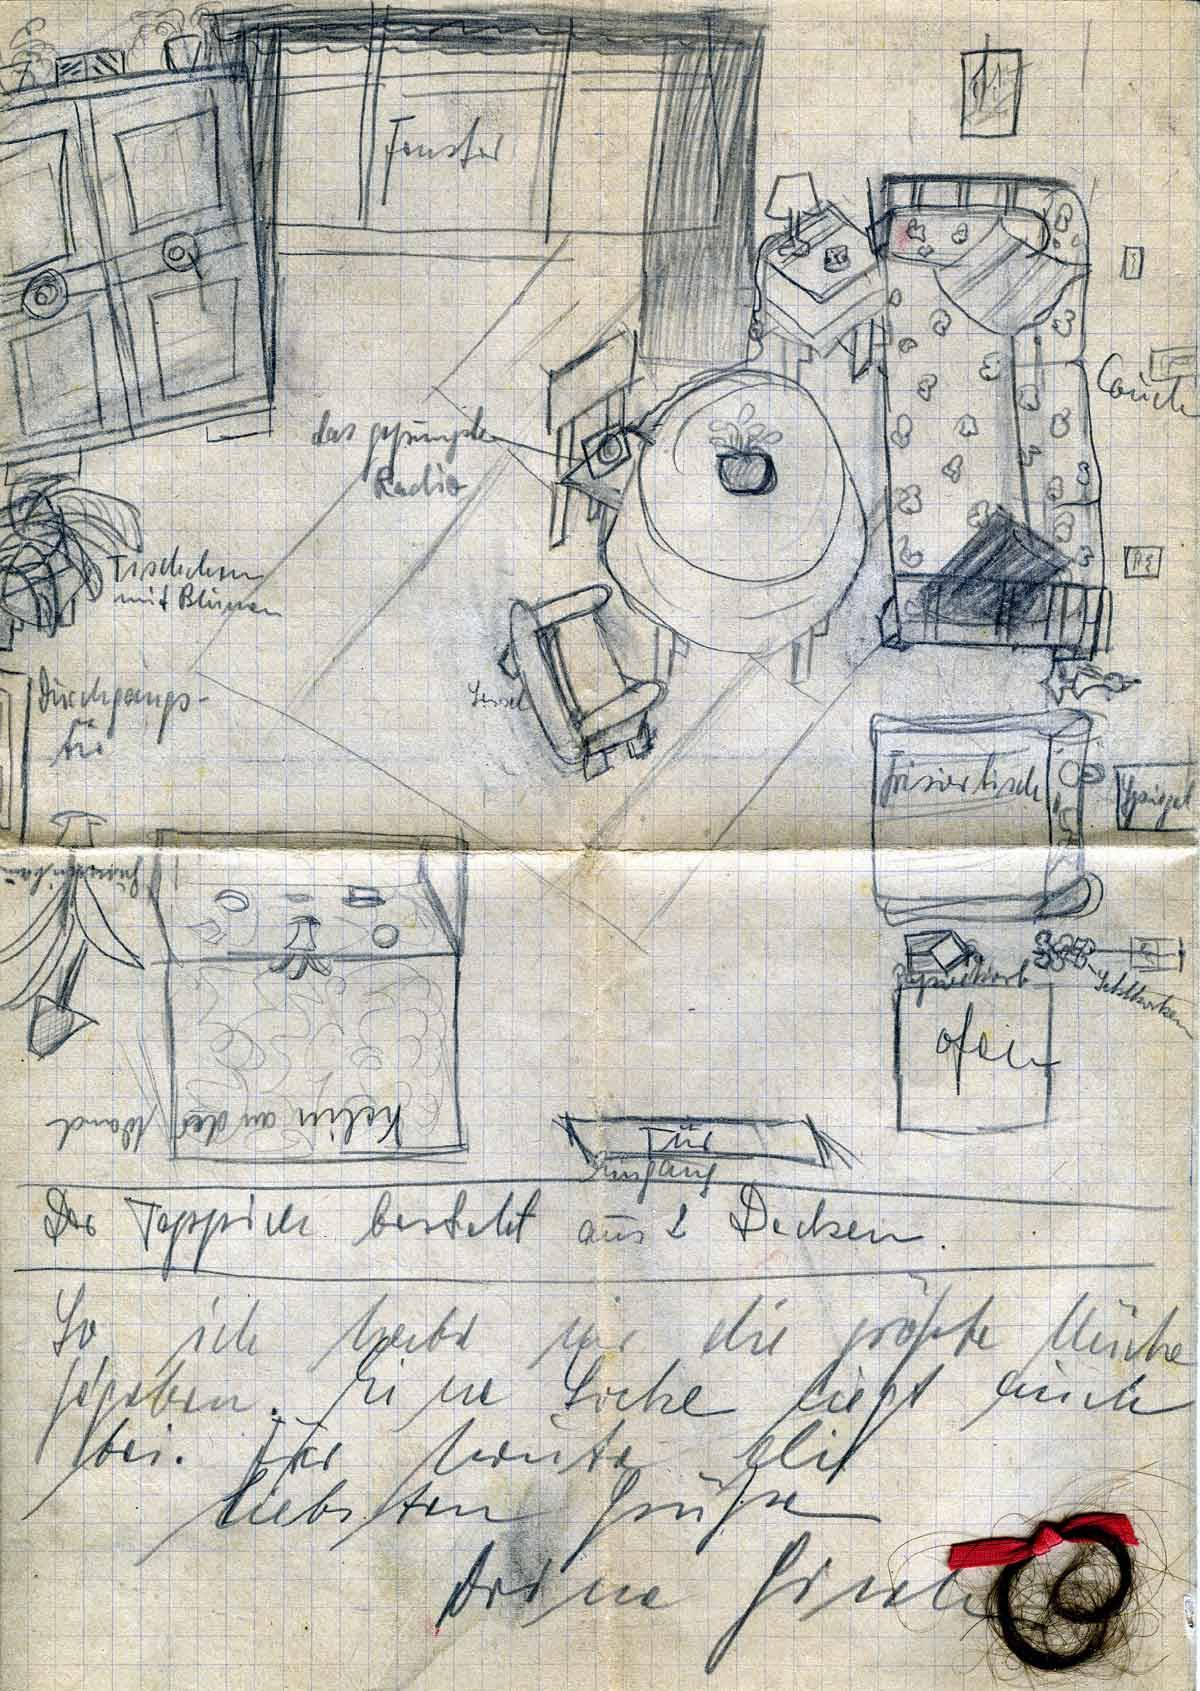 Fenster
Couch
das gepumpte
Radio
Tischchen
mit Blumen
Durchgangs-
tür
Sessel
Frisiertisch
Spiegel
Papierkorb
Ofen
Kelim an der Wand
Tür
Eingang
Der Teppich besteht aus 2 Decken.
So ich habe mir die größte Mühe
gegeben. Eine Locke liegt auch
bei. Für heute
liebsten Grüße
Deine